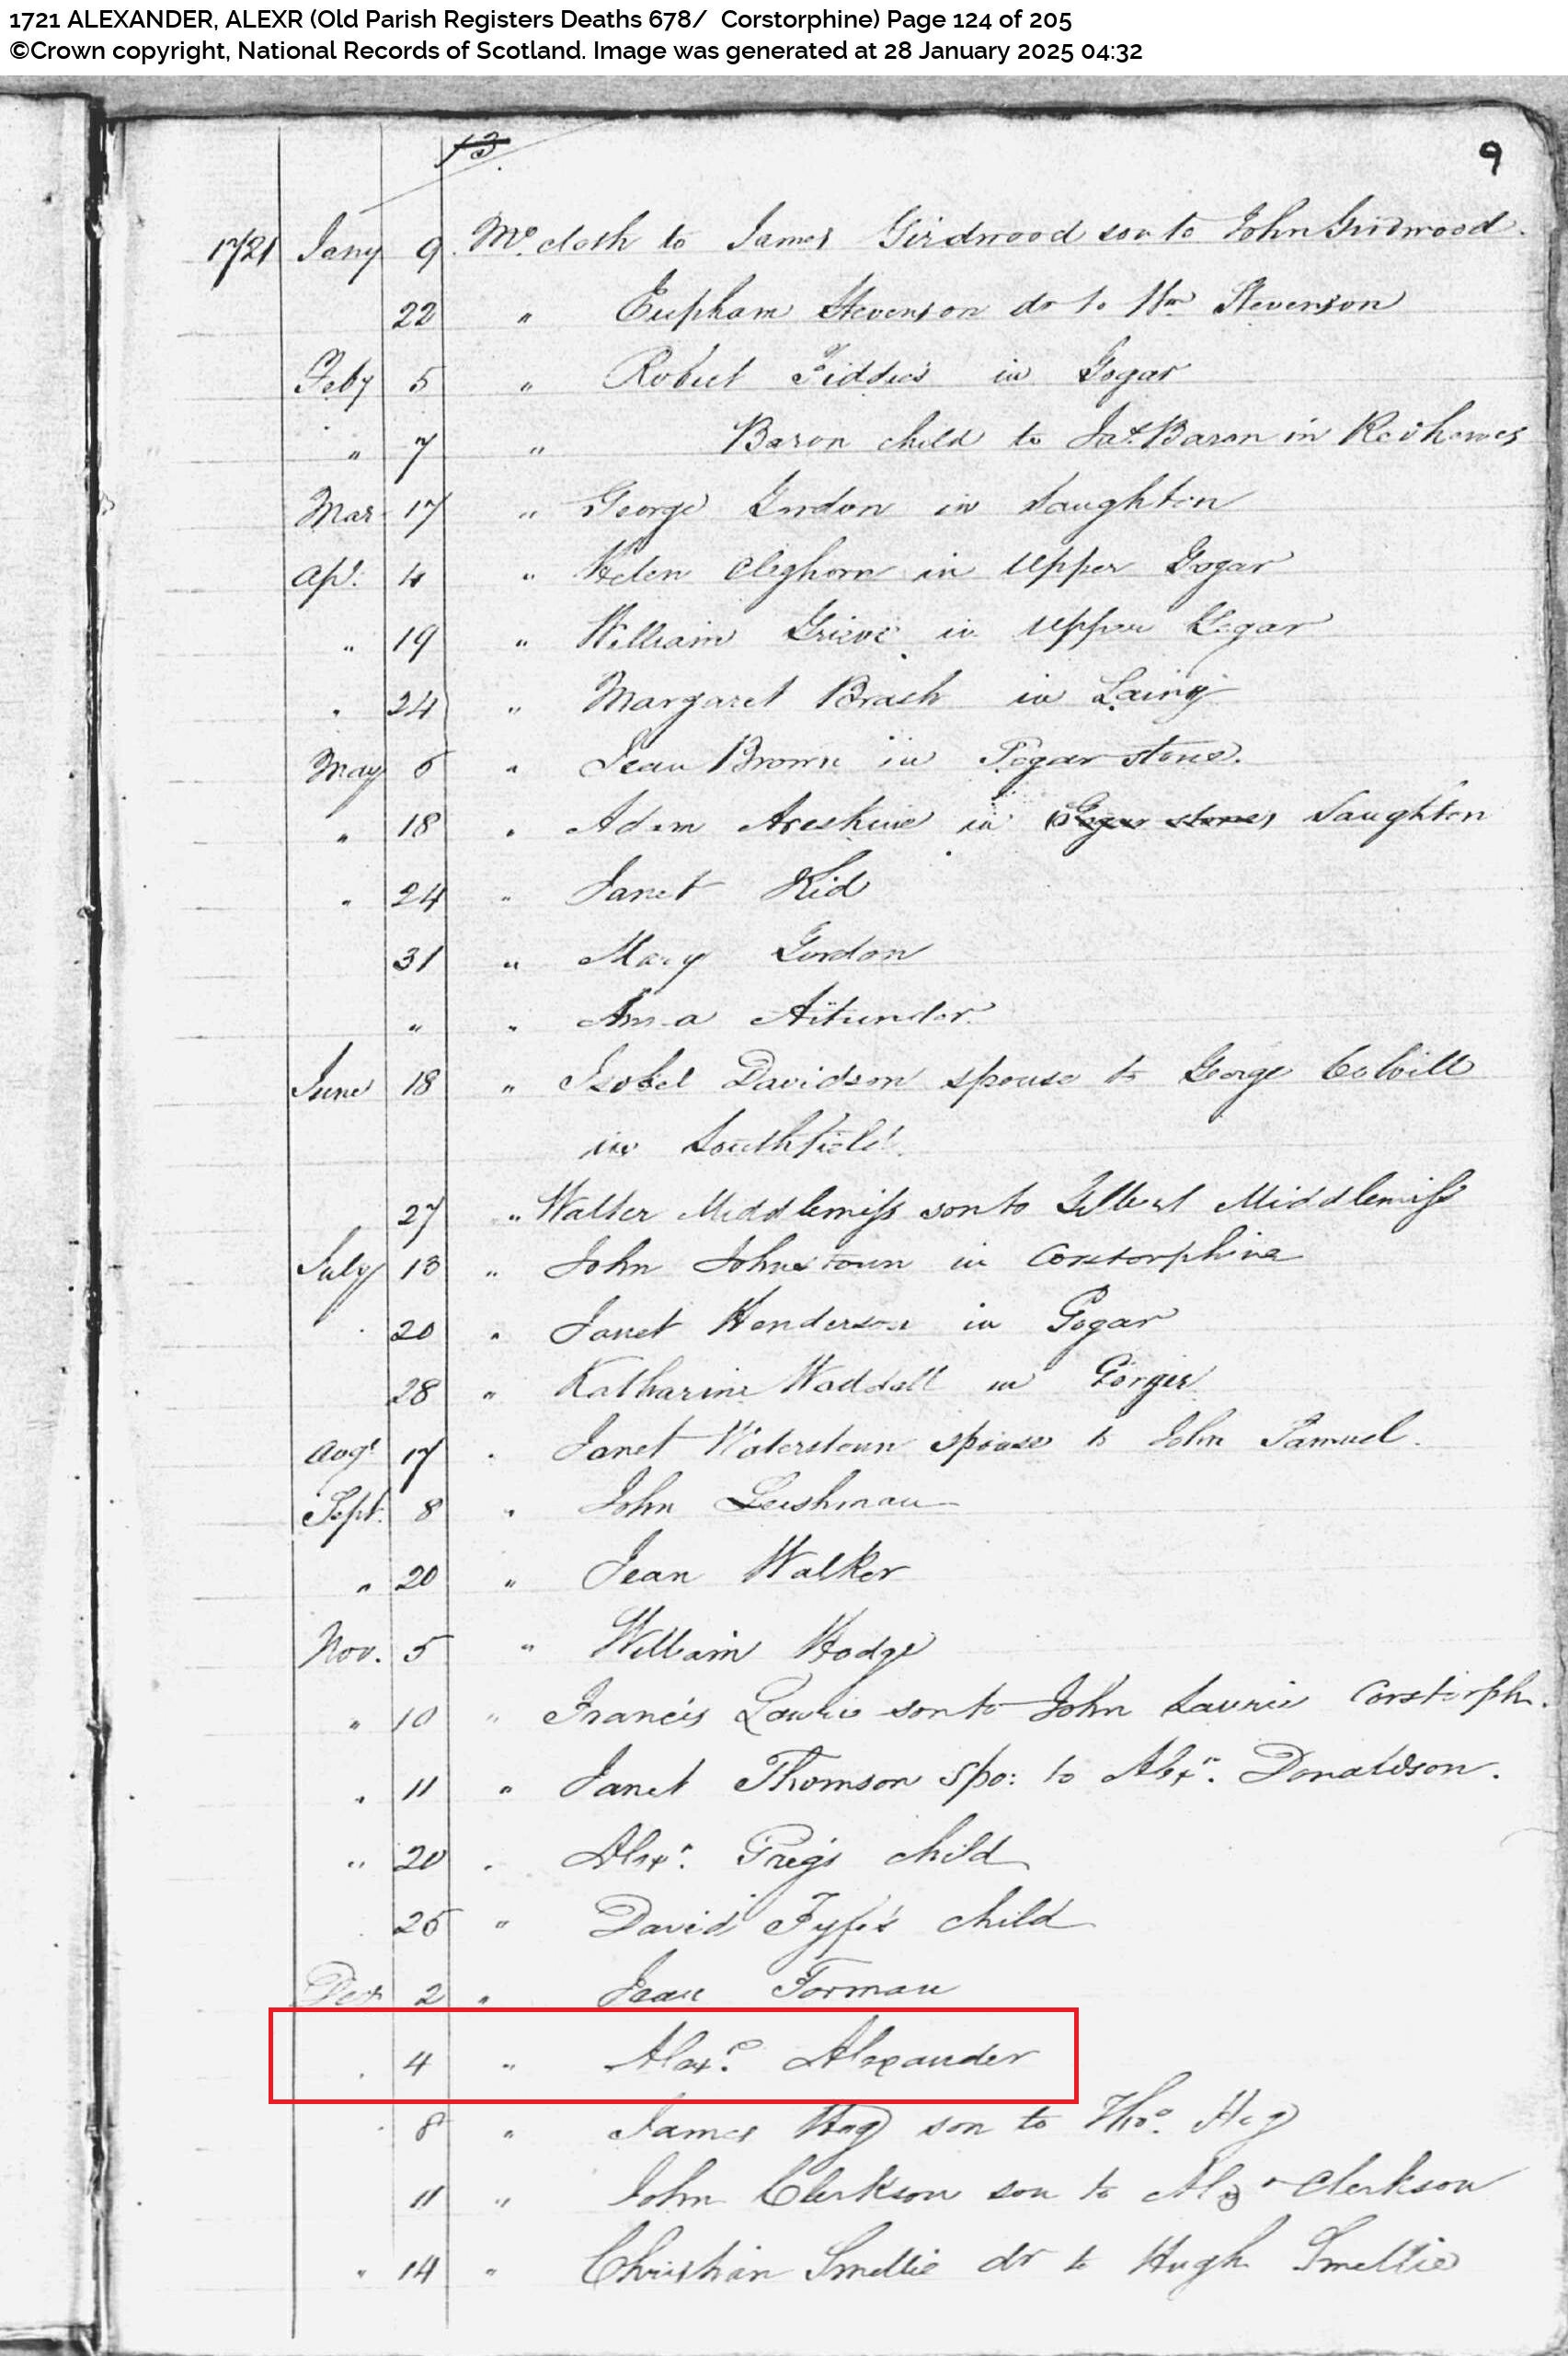 1721 ALEXANDER, ALEXR (Old Parish Registers Deaths 678/ Corstorphine) Page 124 of 205
©Crown copyright, National Records of Scotland. Image was generated at 28 January 2025 04:32
13.
9
1721 Jany 9 Mo. cloth to James Girdwood son to John Girdwood.
22 " Eupham Stevenson dr to Wm Stevenson
Feby 5 " Robert in Gogar
" 7 " Baron child to Jas. Baron in
Mar 17 " George Gordon in Saughton
Apl. 4 " Helen Cleghorn in Upper Gogar
" 19 " William Grieve in Upper Gogar
" 24 " Margaret Brash in Laing
May 6 " Jean Brown in Gogar stone.
" 18 " Adam Areskine in Gogar stone Saughton
" 24 " Janet Kid
31 " Mary Gordon
" "
June 18 " Isobel Davidson spouse to George Colvill
in Southfield.
27 " Walter Middlemiss son to Gilbert Middlemiss
July 13 " John Johnstoun in Corstorphine
20 " Janet Henderson in Gogar
28 " Katharine Waddell in Gorgie
Augt 17 " Janet Waterstoun spouse to John Samuel.
Sept. 8 " John Leishman
" 20 " Jean Walker
Nov. 5 " William Hodge
" 10 " Francis Lawrie son to John Laurie Corstorph.
" 11 " Janet Thomson Spo: to Alexr. Donaldson.
" 20 " Alexr. Greigs child
25 " David Fyfe's child
Decr 2 " Jean Forman
4 " Alexr. Alexander
8 " James Hog son to Tho. Hog
11 " John Clerkson son to Alexr Clerkson
" 14 " Christian Smellie dr to Hugh Smellie